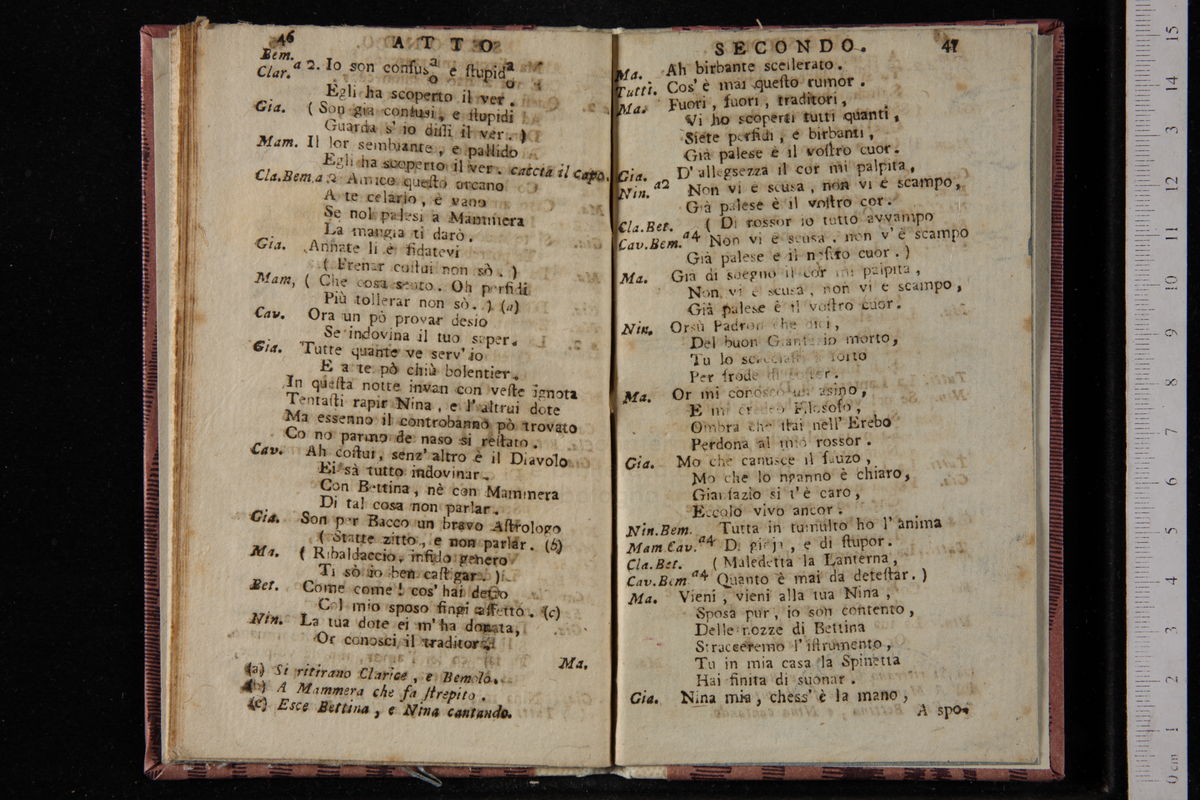 46 ATTO
Bem.
Clar. a 2. Io son confus a o e ſtupid a o
Egli ha scoperto il ver.
Gia. ( Son gia confusi, e ſtupidi
Guarda s' io diſſi il ver. )
Mam. Il lor sembiante, e pallido
Egli ha scoperto il ver. caccia il capo.
Cla.Bem.a 2 Amico queſto arcano
A te celarlo, e vano
Se nol palesi a Mammera
La mangia ti darò.
Gia. Annate li e fidatevi
( Frenar coſtui non sò. )
Mam, ( Che cosa sento. Oh perfidi
Più tollerar non sò. ) (a)
Cav. Ora un pò provar desio
Se indovina il tuo saper.
Gia. Tutte quante ve serv' io
E a te pò chiù bolentier.
In queſta notte invan con veſte ignota
Tentaſti rapir Nina, e l' altrui dote
Ma essenno il controbanno pò trovato
Co no parmo de naso si reſtato.
Cav. Ah coſtui, senz' altro è il Diavolo
Ei sà tutto indovinar.
Con Bettina, nè con Mammera
Di tal cosa non parlar.
Gia. Son per Bacco un bravo Aſtrologo
( Statte zitto, e non parlar. (b)
Ma. ( Ribaldaccio, infido genero
Ti sò io ben caſtigar. )
Bet. Come come! cos' hai detto
Col mio sposo fingi affetto. (c)
Nin. La tua dote ei m' ha donata,
Or conosci il traditor.
Ma.
(a) Si ritirano Clarice, e Bemolo.
(b) A Mammera che fa ſtrepito.
(c) Esce Bettina, e Nina cantando.
SECONDO. 47
Ma. Ah birbante scellerato.
Tutti. Cos' è mai queſto rumor.
Ma. Fuori, fuori, traditori,
Vi ho scoperti tutti quanti,
Siete perfidi, e birbanti,
Già palese è il voſtro cuor.
Gia.
Nin. a2 D' allegsezza il cor mi palpita,
Non vi è scusa, non vi è scampo,
Già palese è il voſtro cor.
Cla.Bet.
Cav.Bem. a4 ( Di rossor io tutto avvampo
Non vi è scusa, non v' è scampo
Già palese è il noſtro cuor. )
Ma. Già di sdegno il cor mi palpita,
Non vi è scusa, non vi è scampo,
Già palese è il voſtro cuor.
Nin. Orsù Padron che dici,
Del buon Gianfazio morto,
Tu lo a torto
Per frode di
Ma. Or mi conosco un asino,
E mi credeo Filosofo,
Ombra che ſtai nell' Erebo
Perdona al mio rossor.
Gia. Mo che canusce il fauzo,
Mo che lo nganno è chiaro,
Gianfazio si t' è caro,
Eccolo vivo ancor.
Nin.Bem.
Mam.Cav. a4 Tutta in tumulto ho l' anima
Di gioja, e di ſtupor.
Cla.Bet.
Cav.Bem. a4 ( Maledetta la Lanterna,
Quanto è mai da deteſtar. )
Ma. Vieni, vieni alla tua Nina,
Sposa pur, io son contento,
Delle nozze di Bettina
Stracceremo l' iſtrumento,
Tu in mia casa la Spinetta
Hai finita di suonar.
Gia. Nina mia, chess' è la mano,
A spo-